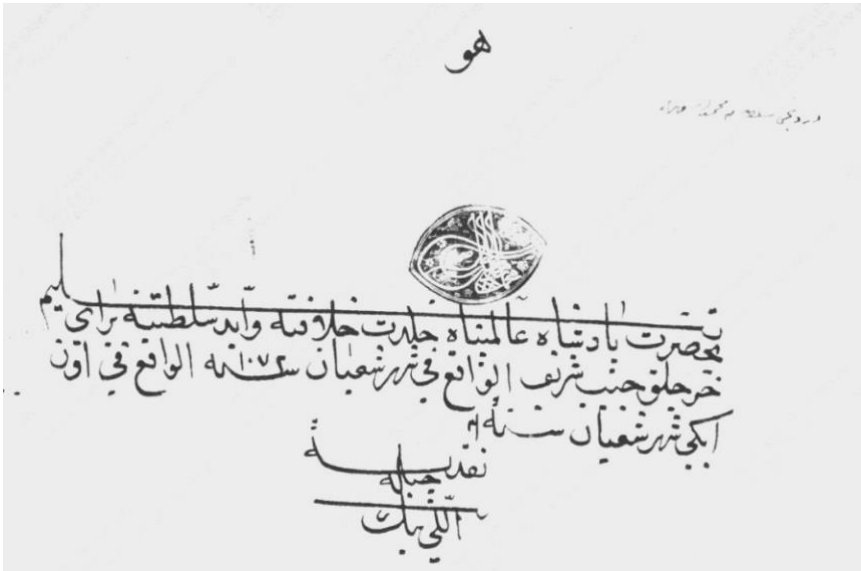 هو
تسليم
بحضرت پادشاه عالمپناه خلدت خلافته وابد سلطنته برای
خرجلق جيب شريف الواقع فی شهر شعبان سنه ١٠٧٢ الواقع فی اون
ايكی شهر شعبان سنة م
نقديه
جمله
اللی بيك